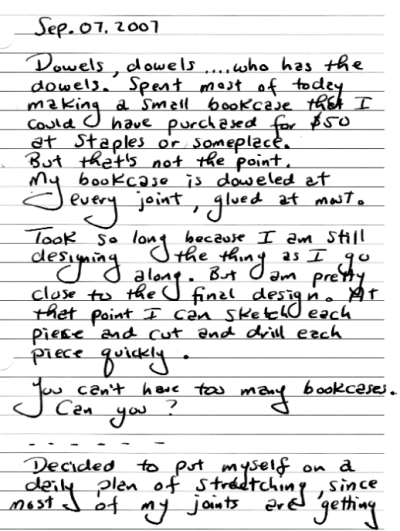 Sep. 07. 2007
Dowels, dowels ....who has the
dowels. Spent most of today
making a small bookcase that I
could have purchased for $50
at Staples or someplace.
But that's not the point.
My bookcase is doweled at
every joint, glued at most.
Took so long because I am still
designing the thing as I go
along. But I am pretty
close to the final design. At
that point I can sketch each
piece and cut and drill each
piece quickly.
You can't have too many bookcases.
Can you?
- - - - - -
Decided to put myself on a
daily plan of stretching, since
most of my joints are getting